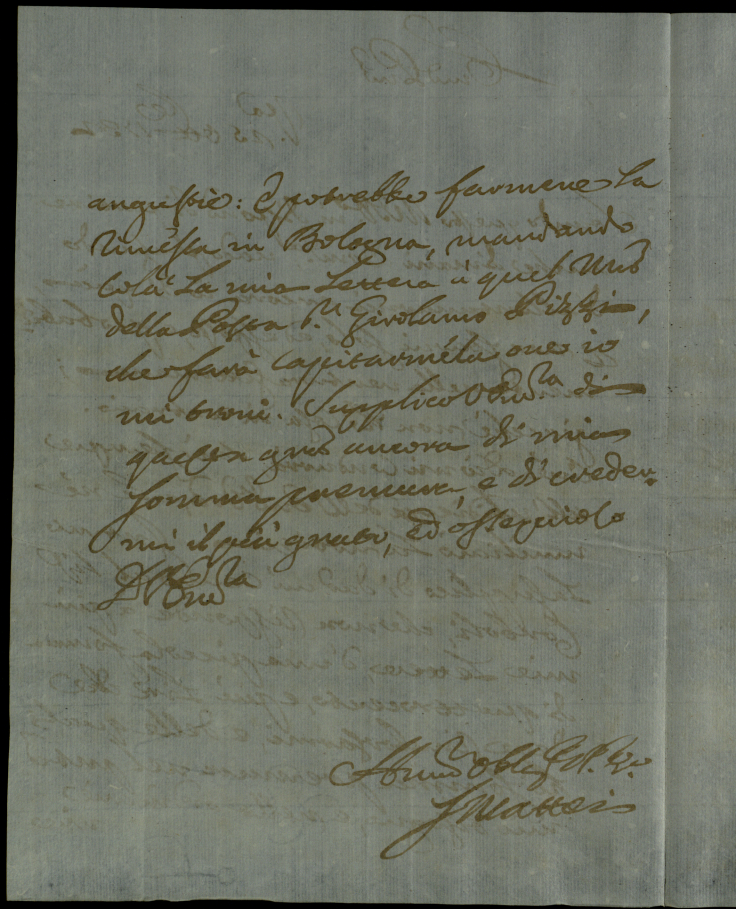 angustie: e potrebbe farmene la
rimessa in Bologna, mandando
colà la mia Lettera à quel Mro
della Posta Sr. Girolamo Pizzi,
che farà capitarmela ove io
mi trovi. Supplico V Emza di
questa gra ancora di mia
somma premura, e di creder-
mi il più grato, ed ossequioso
Di V Emza
Humo
S Mattei